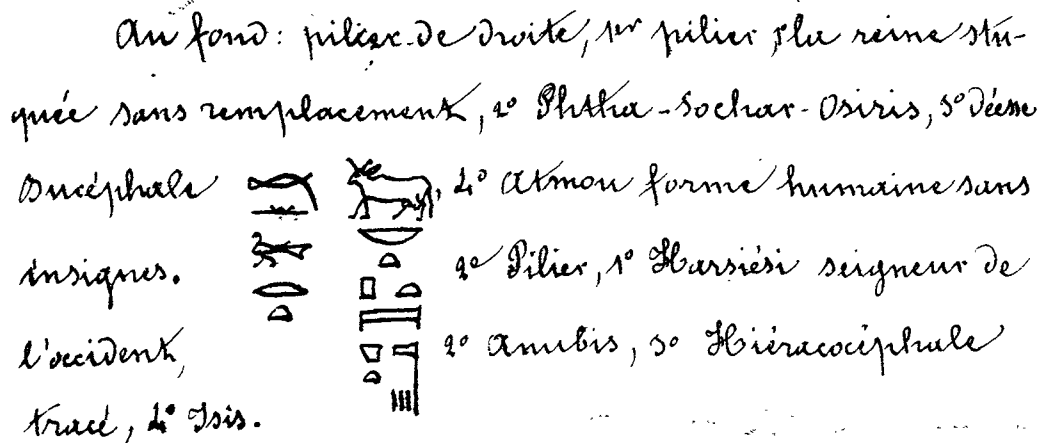 Au fond: pilier de droite, 1er pilier, 1 la reine stu-
quée sans remplacement, 2° Phtha-Sochar-Osiris, 3° Déesse
Bucéphale, 4° Atmou forme humaine sans
insignes. 2° Pilier, 1° Harsiési seigneur de
l'occident, 2° Anubis, 3° Hiéracocéphale
tracé, 4° Isis.